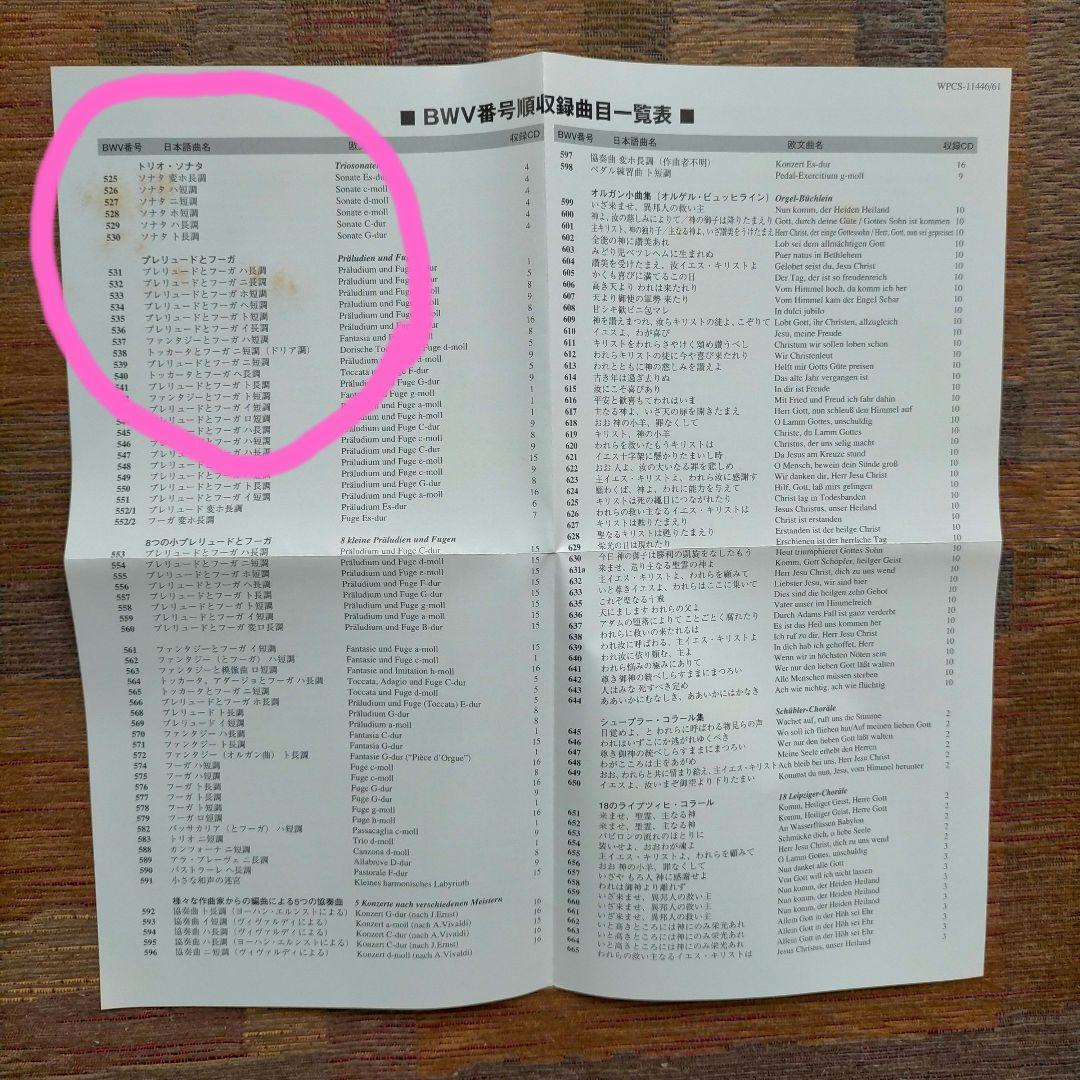 WPCS-11446/61
■ BWV番号順収録曲目一覧表 ■
BWV番号 日本語曲名 欧文 収録CD
トリオ・ソナタ Triosonaten 4
525 ソナタ 変ホ長調 Sonate Es-du 4
526 ソナタ ハ短調 Sonate c-moll 4
527 ソナタ ニ短調 Sonate d-moll 4
528 ソナタ ホ短調 Sonate e-moll 4
529 ソナタ ハ長調 Sonate C-dur 4
530 ソナタ ト長調 Sonate G-dur
プレリュードとフーガ Präludien und Fu 1
531 プレリュードとフーガ ハ長調 Präludium und Fug dur 5
532 プレリュードとフーガ ニ長調 Präludium und Fu 8
533 プレリュードとフーガ ホ短調 Präludium und Fu 9
534 プレリュードとフーガ ヘ短調 Präludium und Fu 8
535 プレリュードとフーガ ト短調 Präludium und Fu 16
536 プレリュードとフーガ イ長調 Präludium und Fu 8
537 ファンタジーとフーガ ハ短調 Fantasia und F 5
538 トッカータとフーガ ニ短調(ドリア調) Dorische Toc Fuge d-moll 5
539 プレリュードとフーガ ニ短調 Präludium d-moll 9
540 トッカータとフーガ ヘ長調 Toccata u F-dur 5
541 プレリュードとフーガ ト長調 Präludium und Fuge G-dur 9
ファンタジーとフーガ ト短調 Fantasie und Fuge g-moll 1
プレリュードとフーガ イ短調 Präludium und Fuge a-moll 1
プレリュードとフーガ ロ短調 Präludium und Fuge 1
プレリュードとフーガ ハ長調 Präludium und Fuge C-dur 9
546 プレリュードとフーガ ハ短調 Präludium und Fuge c-moll 8
547 プレリュードとフーガ ハ長調 Präludium und Fuge C-dur 9
548 プレリュードとフーガ Präludium und Fuge e-moll 15
549 プレリュードとフーガ ハ短調 Präludium und Fuge c-moll 9
550 プレリュードとフーガ ト長調 Präludium und Fuge G-dur 8
551 プレリュードとフーガ イ短調 Präludium und Fuge a-moll 16
552/1 プレリュード 変ホ長調 Präludium Es-dur 6
552/2 フーガ 変ホ長調 Fuge Es-dur 7
8つの小プレリュードとフーガ 8 kleine Präludien und Fugen
553 プレリュードとフーガ ハ長調 Präludium und Fuge C-dur 15
554 プレリュードとフーガ ニ短調 Präludium und Fuge d-moll 15
555 プレリュードとフーガ ホ短調 Präludium und Fuge e-moll 15
556 プレリュードとフーガ ヘ長調 Präludium und Fuge F-dur 15
557 プレリュードとフーガ ト長調 Präludium und Fuge G-dur 15
558 プレリュードとフーガ ト短調 Präludium und Fuge g-moll 15
559 プレリュードとフーガ イ短調 Präludium und Fuge a-moll 15
560 プレリュードとフーガ 変ロ長調 Präludium und Fuge B-dur 15
561 ファンタジーとフーガ イ短調 Fantasie und Fuge a-moll 15
562 ファンタジー(とフーガ) ハ短調 Fantasie und Fuge c-moll 1
563 ファンタジーと模倣曲 ロ短調 Fantasie und Imitation h-moll 16
564 トッカータ、アダージョとフーガ ハ長調 Toccata, Adagio und Fuge C-dur 5
565 トッカータとフーガ ニ短調 Toccata und Fuge d-moll 5
566 プレリュードとフーガ ホ長調 Präludium und Fuge (Toccata) E-dur 5
568 プレリュード ト長調 Präludium G-dur 8
569 プレリュード イ短調 Präludium a-moll 8
570 ファンタジー ハ長調 Fantasia C-dur 1
571 ファンタジー ト長調 Fantasia G-dur 15
572 ファンタジー(オルガン曲) ト長調 Fantasie G-dur ("Pièce d'Orgue") 1
574 フーガ ハ短調 Fuge c-moll 16
575 フーガ ハ短調 Fuge c-moll 8
576 フーガ ト長調 Fuge G-dur 16
577 フーガ ト長調 Fuge G-dur 9
578 フーガ ト短調 Fuge g-moll 1
579 フーガ ロ短調 Fuge h-moll 16
582 パッサカリア(とフーガ) ハ短調 Passacaglia c-moll 1
583 トリオ ニ短調 Trio d-moll 9
588 カンツォーナ ニ短調 Canzona d-moll 8
589 アラ・ブレーヴェ ニ長調 Allabreve D-dur 9
590 パストラーレ ヘ長調 Pastorale F-dur 15
591 小さな和声の迷宮 Kleines harmonisches Labyrinth
様々な作曲家からの編曲による5つの協奏曲 5 Konzerte nach verschiedenen Meistern
592 協奏曲 ト長調(ヨーハン・エルンストによる) Konzert G-dur (nach J.Ernst) 16
593 協奏曲 イ短調(ヴィヴァルディによる) Konzert a-moll (nach A.Vivaldi) 16
594 協奏曲 ハ長調(ヴィヴァルディによる) Konzert C-dur (nach A.Vivaldi) 16
595 協奏曲 ハ長調(ヨーハン・エルンストによる) Konzert C-dur (nach J.Ernst) 16
596 協奏曲 ニ短調(ヴィヴァルディによる) Konzert d-moll (nach A.Vivaldi)
BWV番号 日本語曲名 欧文曲名 収録CD
597 協奏曲 変ホ長調(作曲者不明) Konzert Es-dur 16
598 ペダル練習曲 ト短調 Pedal-Exercitium g-moll 9
オルガン小曲集(オルゲル・ビュッヒライン) Orgel-Büchlein
599 いざ来ませ、異邦人の救い主 Nun komm, der Heiden Heiland 10
600 神よ、汝の慈しみによりて/神の御子は降りたまえり Gott, durch deine Güte / Gottes Sohn ist kommen 10
601 主キリスト、神の独り子/主なる神よ、いざ讃美をうけたまえ Herr Christ, der einge Gottessohn / Herr Gott, nun sei gepreiset 10
602 全能の神に讃美あれ Lob sei dem allmächtigen Gott 10
603 みどり児ベツレヘムに生まれぬ Puer natus in Bethlehem 10
604 讃美を受けたまえ、汝イエス・キリストよ Gelobet seist du, Jesu Christ 10
605 かくも喜びに満てるこの日 Der Tag, der ist so freudenreich 10
606 高き天より われは来たれり Vom Himmel hoch, da komm ich her 10
607 天より御使の軍勢 来たり Vom Himmel kam der Engel Schar 10
608 甘き歓びに包まれ In dulci jubilo 10
609 神を讃えまつれ、汝らキリストの徒よ、こぞりて Lobt Gott, ihr Christen, allzugleich 10
610 イエスよ、わが喜び Jesu, meine Freude 10
611 キリストをわれらさやけく頌め讃うべし Christum wir sollen loben schon 10
612 われらキリストの徒に今や喜び来たれり Wir Christenleut 10
613 われとともに神の慈しみを讃えよ Helft mir Gotts Güte preisen 10
614 古き年は過ぎ去りぬ Das alte Jahr vergangen ist 10
615 汝にこそ喜びあり In dir ist Freude 10
616 平安と歓喜もてわれはいま Mit Fried und Freud ich fahr dahin 10
617 主なる神よ、いざ天の扉を開きたまえ Herr Gott, nun schleuß den Himmel auf 10
618 おお 神の小羊、罪なくして O Lamm Gottes, unschuldig 10
619 キリスト、神の小羊 Christe, du Lamm Gottes 10
620 われらを救いたもうキリストは Christus, der uns selig macht 10
621 イエス十字架に懸かりたまいし時 Da Jesus am Kreuze stund 10
622 おお 人よ、汝の大いなる罪を悲しめ O Mensch, bewein dein Sünde groß 10
623 主イエス・キリストよ、われら汝に感謝す Wir danken dir, Herr Jesu Christ 10
624 願わくば、神よ、われに能力を与えて Hilf, Gott, laß mirs gelingen 10
625 キリストは死の縄目につながれたり Christ lag in Todesbanden 10
626 われらの救い主なるイエス・キリスト Jesus Christus, unser Heiland 10
627 キリストは甦りたまえり Christ ist erstanden 10
628 聖なるキリストは甦りたまえり Erstanden ist der heilge Christ 10
629 栄光の日は現れたり Erschienen ist der herrliche Tag 10
630 今日 神の御子は勝利の凱旋をなしたもう Heut triumphieret Gottes Sohn 10
631a 来ませ、造り主なる聖霊の神よ Komm, Gott Schöpfer, heilger Geist 10
632 主イエス・キリストよ、われらを顧みて Herr Jesu Christ, dich zu uns wend 10
633 いと尊きイエスよ、われらはここに集いて Liebster Jesu, wir sind hier 10
635 これぞ聖なる十戒 Dies sind die heilgen zehn Gebot 10
636 天にまします われらの父よ Vater unser im Himmelreich 10
637 アダムの堕落によりて ことごとく腐れたり Durch Adams Fall ist ganz verderbt 10
638 われらに救いの来たれるは Es ist das Heil uns kommen her 10
639 われ汝に呼ばわる、主イエス・キリストよ Ich ruf zu dir, Herr Jesu Christ 10
640 われ汝に依り頼む、主よ In dich hab ich gehoffet, Herr 10
641 われら悩みの極みにありて Wenn wir in höchsten Nöten sein 10
642 尊き御神の統べしらすままにまつろい Wer nur den lieben Gott läßt walten 10
643 人はみな 死すべき定め Alle Menschen müssen sterben 10
644 ああいかにむなしき、ああいかにはかなき Ach wie nichtig, ach wie flüchtig 10
シューブラー・コラール集 Schübler-Choräle
645 目覚めよ、と われらに呼ばわる物見らの声 Wachet auf, ruft uns die Stimme 2
646 われはいずこにか逃がれゆくべき Wo soll ich fliehen hin/Auf meinen lieben Gott 2
647 尊き御神の統べしらすままにまつろい Wer nur den lieben Gott läßt walten 2
648 わがこころは主をあがめ Meine Seele erhebt den Herren 2
649 おお、われらと共に留まり給え、主イエス・キリスト Ach bleib bei uns, Herr Jesu Christ 2
650 イエスよ、汝いまぞ御空より下りたまい Kommst du nun, Jesu, vom Himmel herunter 2
18のライプツィヒ・コラール 18 Leipziger-Choräle
651 来ませ、聖霊、主なる神 Komm, Heiliger Geist, Herre Gott 2
652 来ませ、聖霊、主なる神 Komm, Heiliger Geist, Herre Gott 2
653 バビロンの流れのほとりに An Wasserflüssen Babylon 2
654 装いせよ、おおわが魂よ Schmücke dich, o liebe Seele 2
655 主イエス・キリストよ、われらを顧みて Herr Jesu Christ, dich zu uns wend 2
656 おお 神の小羊、罪なくして O Lamm Gottes, unschuldig 3
657 いざやもろ人 神に感謝せよ Nun danket alle Gott 3
658 われは御神より離れず Von Gott will ich nicht lassen 3
659 いざ来ませ、異邦人の救い主 Nun komm, der Heiden Heiland 3
660 いざ来ませ、異邦人の救い主 Nun komm, der Heiden Heiland 3
661 いざ来ませ、異邦人の救い主 Nun komm, der Heiden Heiland 3
662 いと高きところには神にのみ栄光あれ Allein Gott in der Höh sei Ehr 3
663 いと高きところには神にのみ栄光あれ Allein Gott in der Höh sei Ehr 3
664 いと高きところには神にのみ栄光あれ Allein Gott in der Höh sei Ehr 3
665 われらの救い主なるイエス・キリストは Jesus Christus, unser Heiland 3